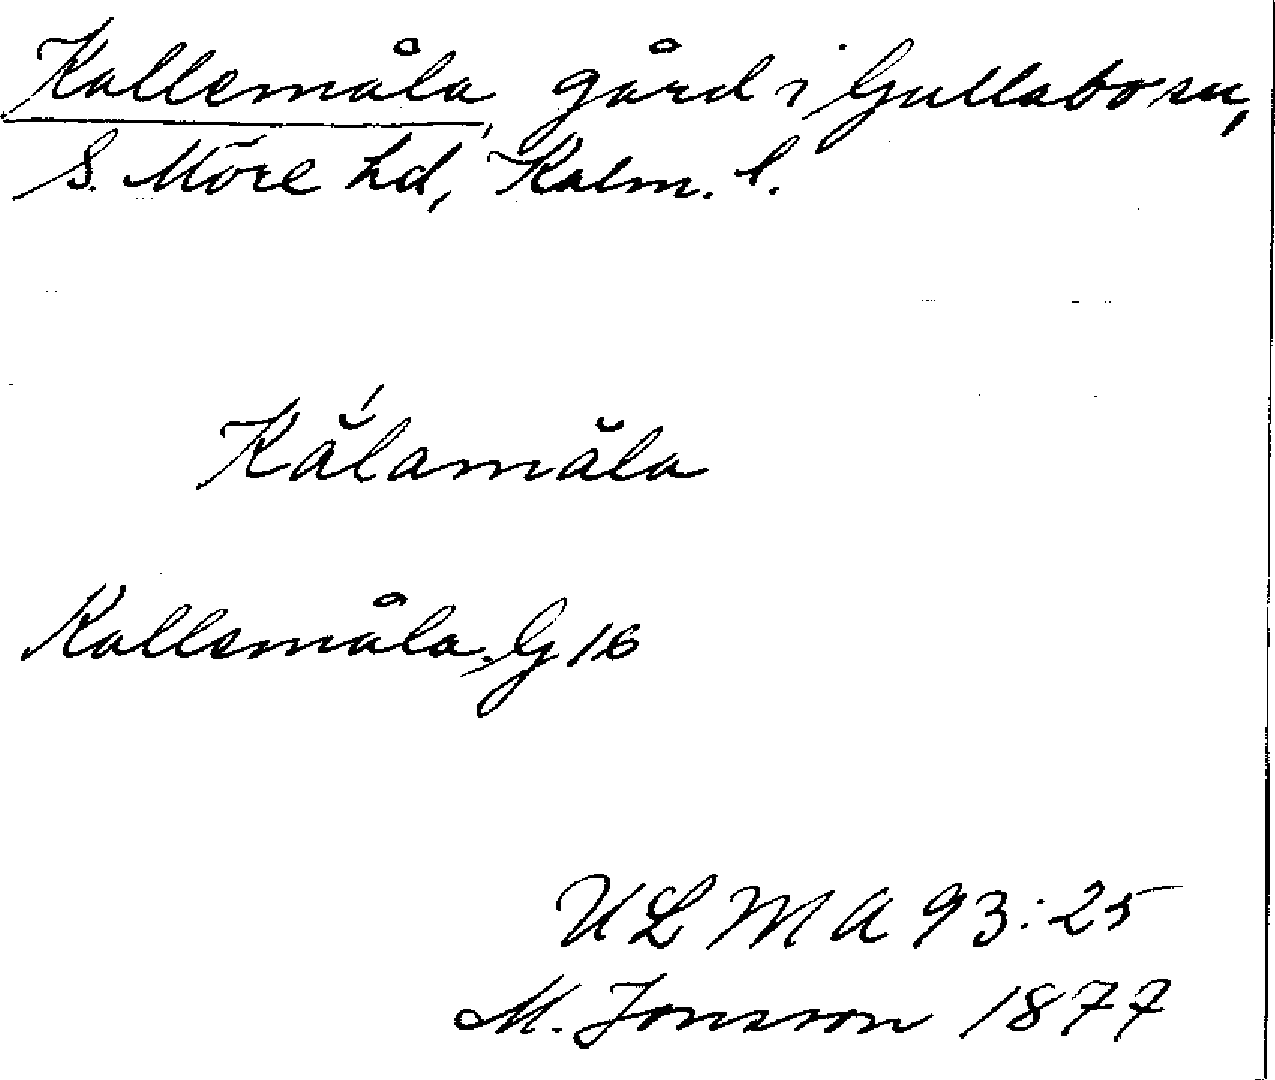 Kallemåla, gård i Gullabo sn,
S. Möre hd, Kalm. l.
Kålamåla
Kallemåla, G 16
ULMA 93:25
M. Jonsson 1877